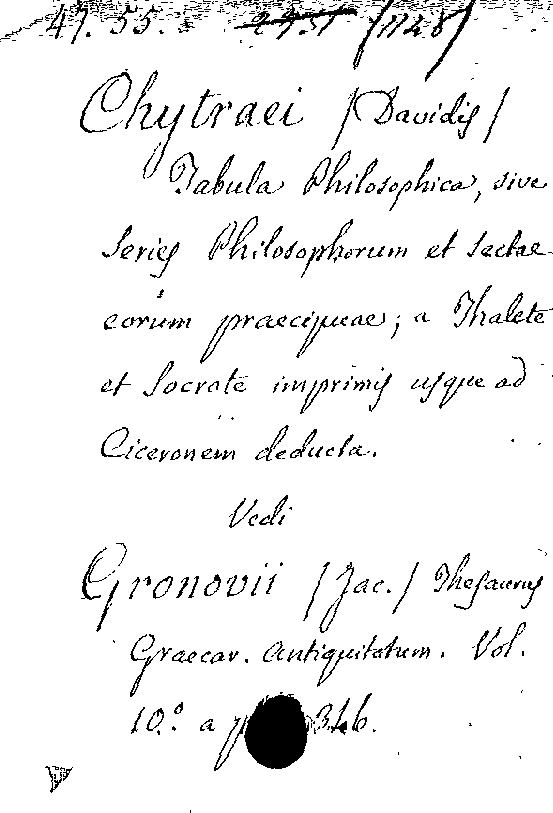 47. 55. 2931 (1128)
Chytraei (Davidis)
Tabula Philosophica, sive
Series Philosophorum et sectae
eorum praecipuae; a Thalete
et Socrate imprimis usque ad
Ciceronem deducta.
Vedi
Gronovii (Jac.) Thesaurus
Graecar. Antiquitatum. Vol.
10.º a